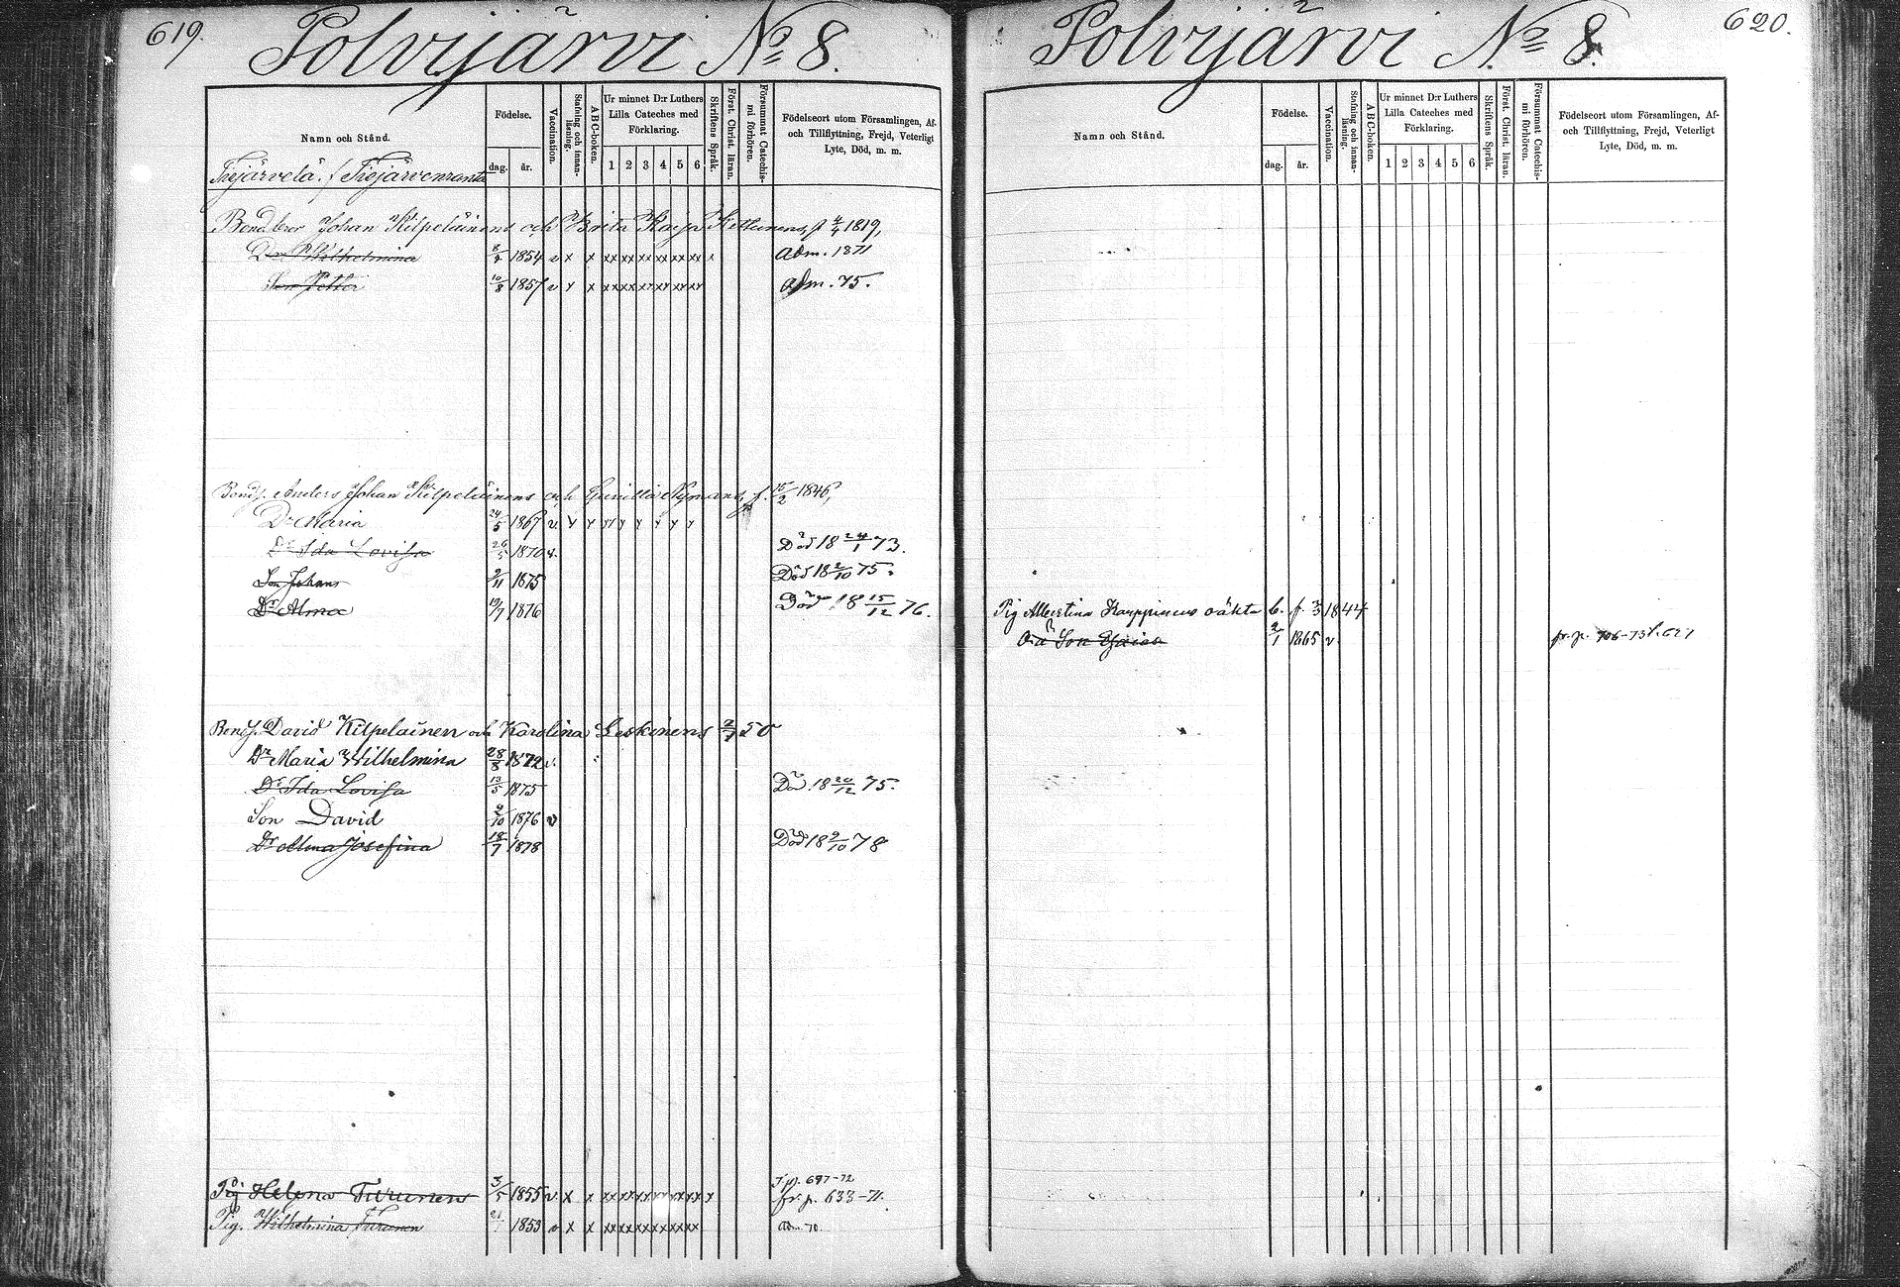 619.
Polvijärvi No 8.
Namn och Stånd.
Födelse.
dag.
år.
Vaccination.
Stafning och innanläsning.
ABC-boken.
Ur minnet D:r Luthers
Lilla Cateches med
Förklaring.
1 2 3 4 5 6
Skriftens Språk.
Först. Christ. läran.
Försummat Catechismi förhören.
Födelseort utom Församlingen, Af-
och Tillflyttning, Frejd, Veterligt
Lyte, Död, m. m.
Bondbror Johan Kilpeläinens och Brita Kaisa Kettunens, f 1819,
Dr Wilhelmina 1854 v x x xx xx xx xx xx xx Adm. 1871
Son Petter 10/8 1857 v x x xx xx xx xx xx xx Adm. 75.
Bondf. Anders Johan Kilpeläinens och Gunilla Nymans, f. 15/2 1846,
Dr Maria 24/5 1867 v.
Dr Ida Lovisa 26/5 1870 v. Död 18 24/1 73.
Son Johan 2/11 1875 Död 18 2/10 75.
Dr Alma 19/7 1876 Död 18 15/12 76.
Bondf. David Kilpeläinen och Karolina Leskinens 50
Dr Maria Wilhelmina 28/8 1872 v.
Dr Ida Lovisa 13/5 1875 Död. 18 20/12 75.
Son David 2/10 1876 v
Dr Alma Josefina 18/7 1878 Död 18 2/10 78
Pig Helena Turunen 3/5 1855 v. x x T. p. 697-72
fr. p. 633-71.
Pig. Wilhelmina Turunen 1853 v x x Adm. 70
620.
Polvijärvi No 8.
Namn och Stånd.
Födelse.
dag.
år.
Vaccination.
Stafning och innanläsning.
ABC-boken.
Ur minnet D:r Luthers
Lilla Cateches med
Förklaring.
1 2 3 4 5 6
Skriftens Språk.
Först. Christ. läran.
Försummat Catechismi förhören.
Födelseort utom Församlingen, Af-
och Tillflyttning, Frejd, Veterligt
Lyte, Död, m. m.
Pig Albertina Karppinens oäkta b. f. 1844
Son 2/1 1865 v.